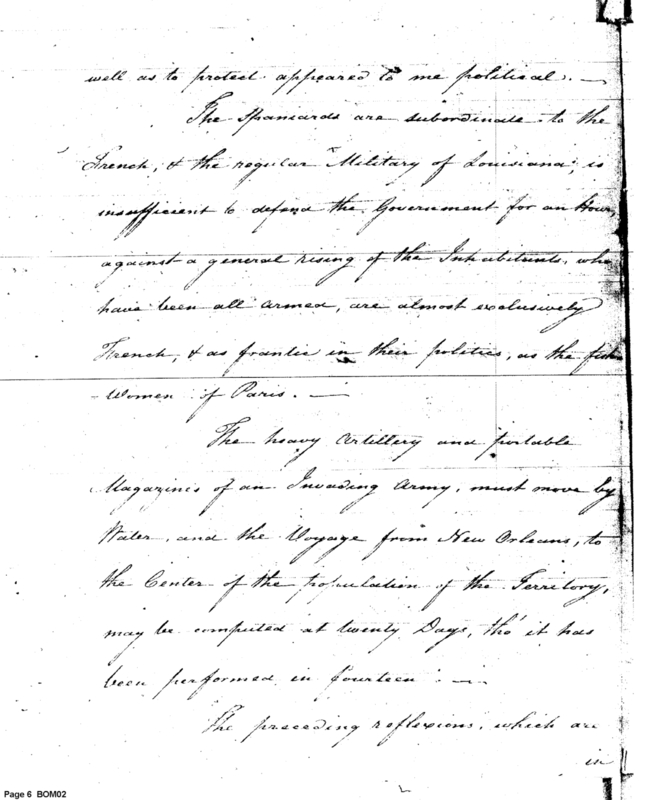 well as to protect appeared to me political. —
The Spaniards are subordinate to the
French, & the regular Military of Louisiana, is
insufficient to defend the Government for an Hour,
against a general rising of the Inhabitants, who
have been all armed, are almost exclusively
French, & as frantic in their politics, as the fish
Women of Paris. —
The heavy Artillery and portable
Magazines of an Invading Army, must move by
Water, and the Voyage from New Orleans, to
the Center of the population of the Territory,
may be computed at twenty Days, tho' it has
been performed in fourteen. —
The preceding reflexions, which are
in
Page 6 BOM02